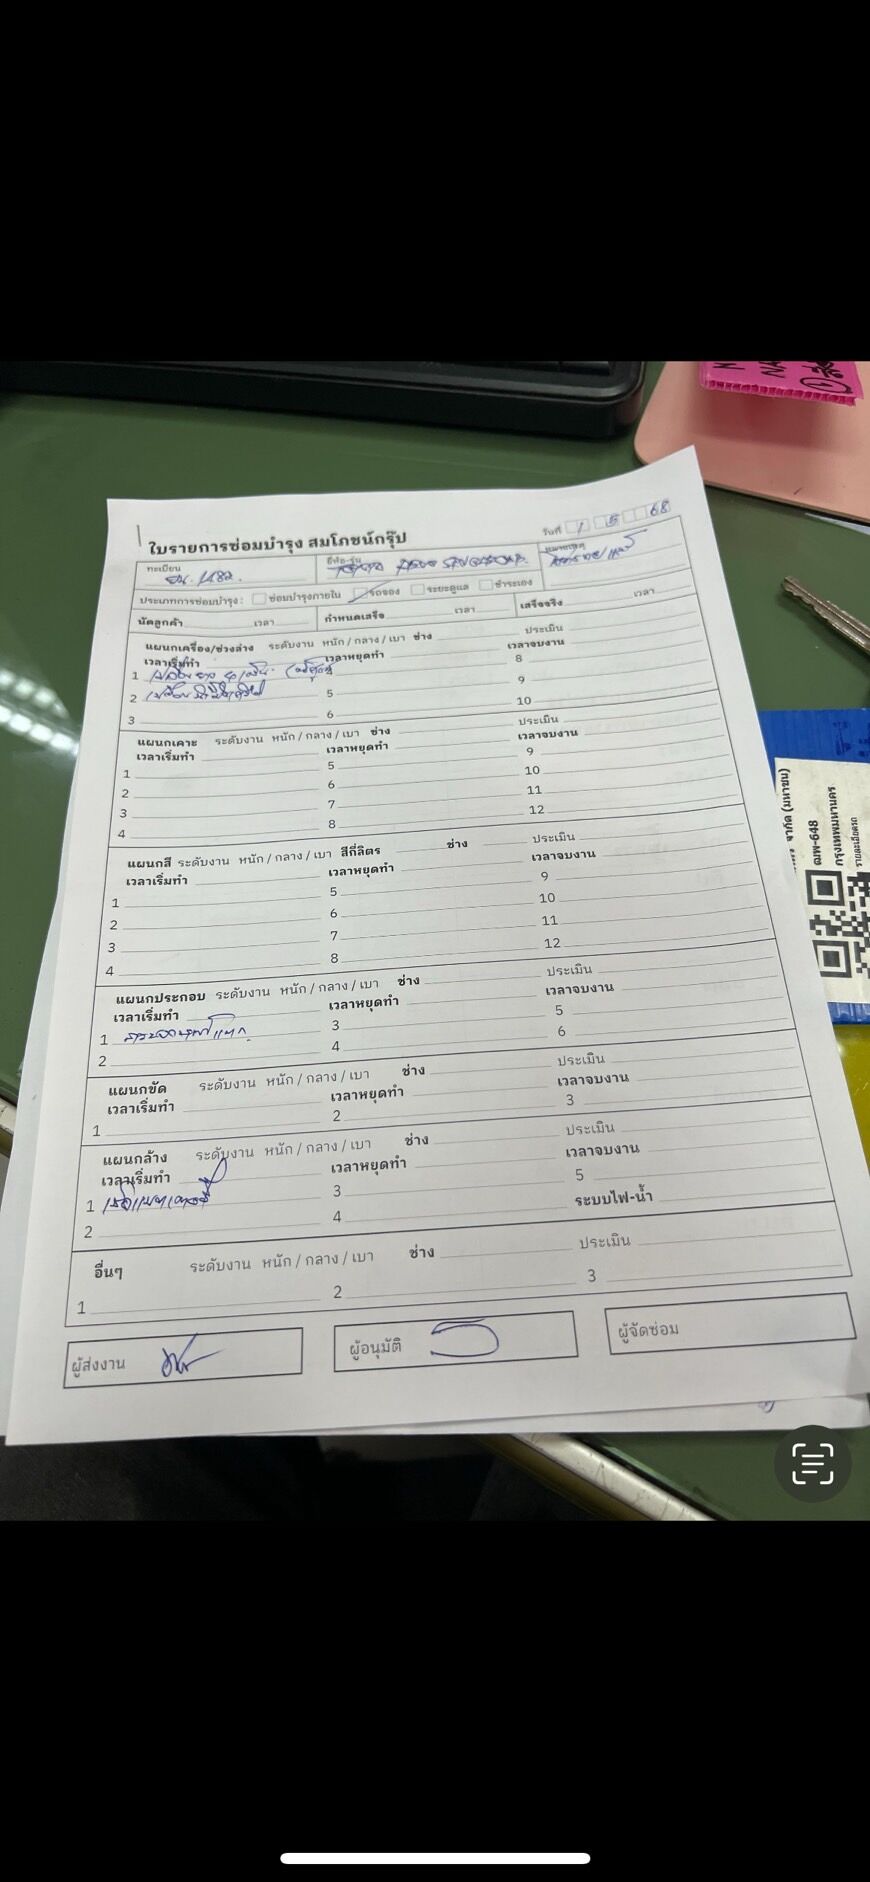 ใบรายการซ่อมบำรุง สมโภชน์กรุ๊ป
วันที่ 1 5 68
ทะเบียน ยี่ห้อ-รุ่น TOYOTA หมายเหตุ
ประเภทการซ่อมบำรุง: ซ่อมบำรุงภายใน รถจอง ระยะดูแล ชำระเอง
นัดลูกค้า เวลา กำหนดเสร็จ เวลา เสร็จจริง เวลา
แผนกเครื่อง/ช่วงล่าง ระดับงาน หนัก / กลาง / เบา ช่าง ประเมิน
เวลาเริ่มทำ เวลาหยุดทำ เวลาจบงาน
1 8
2 5 9
3 6 10
แผนกเคาะ ระดับงาน หนัก / กลาง / เบา ช่าง ประเมิน
เวลาเริ่มทำ เวลาหยุดทำ เวลาจบงาน
1 5 9
2 6 10
3 7 11
4 8 12
แผนกสี ระดับงาน หนัก / กลาง / เบา สีกี่ลิตร ช่าง ประเมิน
เวลาเริ่มทำ เวลาหยุดทำ เวลาจบงาน
1 5 9
2 6 10
3 7 11
4 8 12
แผนกประกอบ ระดับงาน หนัก / กลาง / เบา ช่าง ประเมิน
เวลาเริ่มทำ เวลาหยุดทำ เวลาจบงาน
1 3 5
2 4 6
แผนกขัด ระดับงาน หนัก / กลาง / เบา ช่าง ประเมิน
เวลาเริ่มทำ เวลาหยุดทำ เวลาจบงาน
1 2 3
แผนกล้าง ระดับงาน หนัก / กลาง / เบา ช่าง ประเมิน
เวลาเริ่มทำ เวลาหยุดทำ เวลาจบงาน
1 3 5
2 4 ระบบไฟ-น้ำ
อื่นๆ ระดับงาน หนัก / กลาง / เบา ช่าง ประเมิน
1 2 3
ผู้ส่งงาน ผู้อนุมัติ ผู้จัดซ่อม
จำกัด (มหาชน)
ฌพ-648
กรุงเทพมหานคร
รายละเอียดรถ